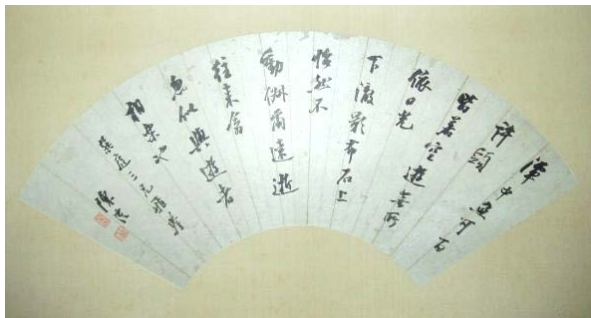 潭中魚可百
許頭
皆若空遊無所
依日光
下澈影布石上
怡然不
動俶爾遠逝
往來翕
忽似與遊者
相樂也
三兄雅
陳